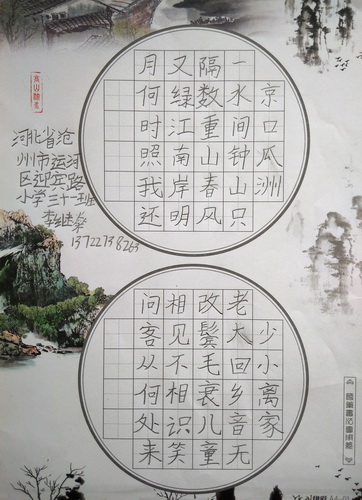 京口瓜洲
一水间钟山只
隔数重山春风
又绿江南岸明
月何时照我还
河北省沧
州市运河
区迎宾路
小学三十一班
13722738263
少小离家
老大回乡音无
改鬓毛衰儿童
相见不相识笑
问客从何处来